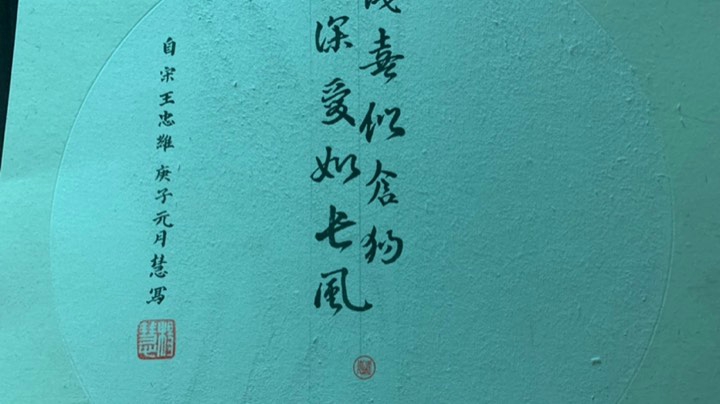 喜似倉狗
深爱如长風
自宋王忠維 庚子元月慧寫